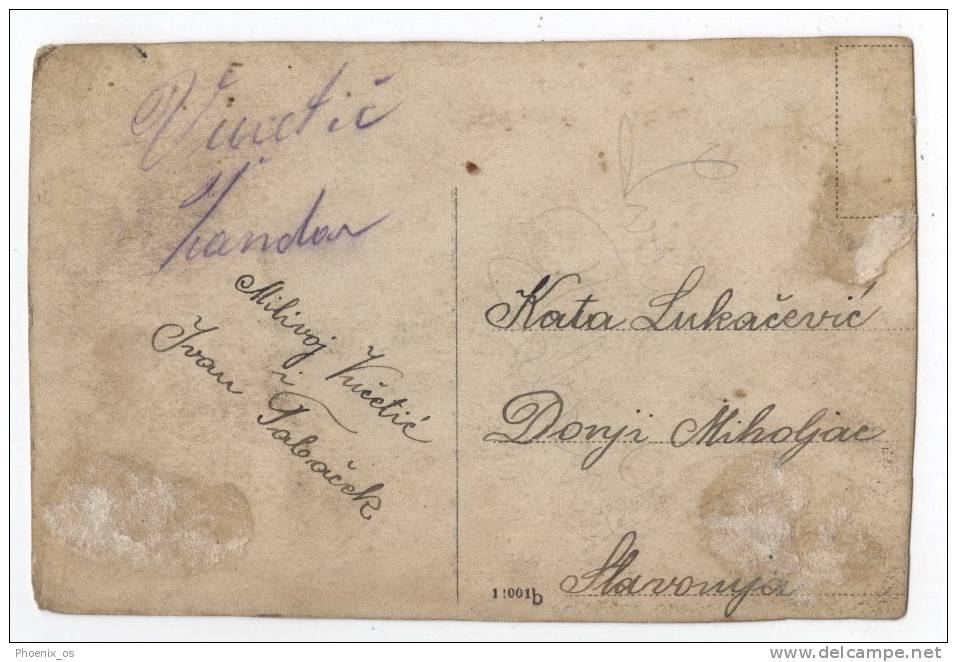 Vucetić
Žandar
Milivoj Vučetić
i
Ivan Tabaček
Kata Lukačević
Donji Miholjac
Slavonija
11001b
Phoenix_os
www.delcampe.net